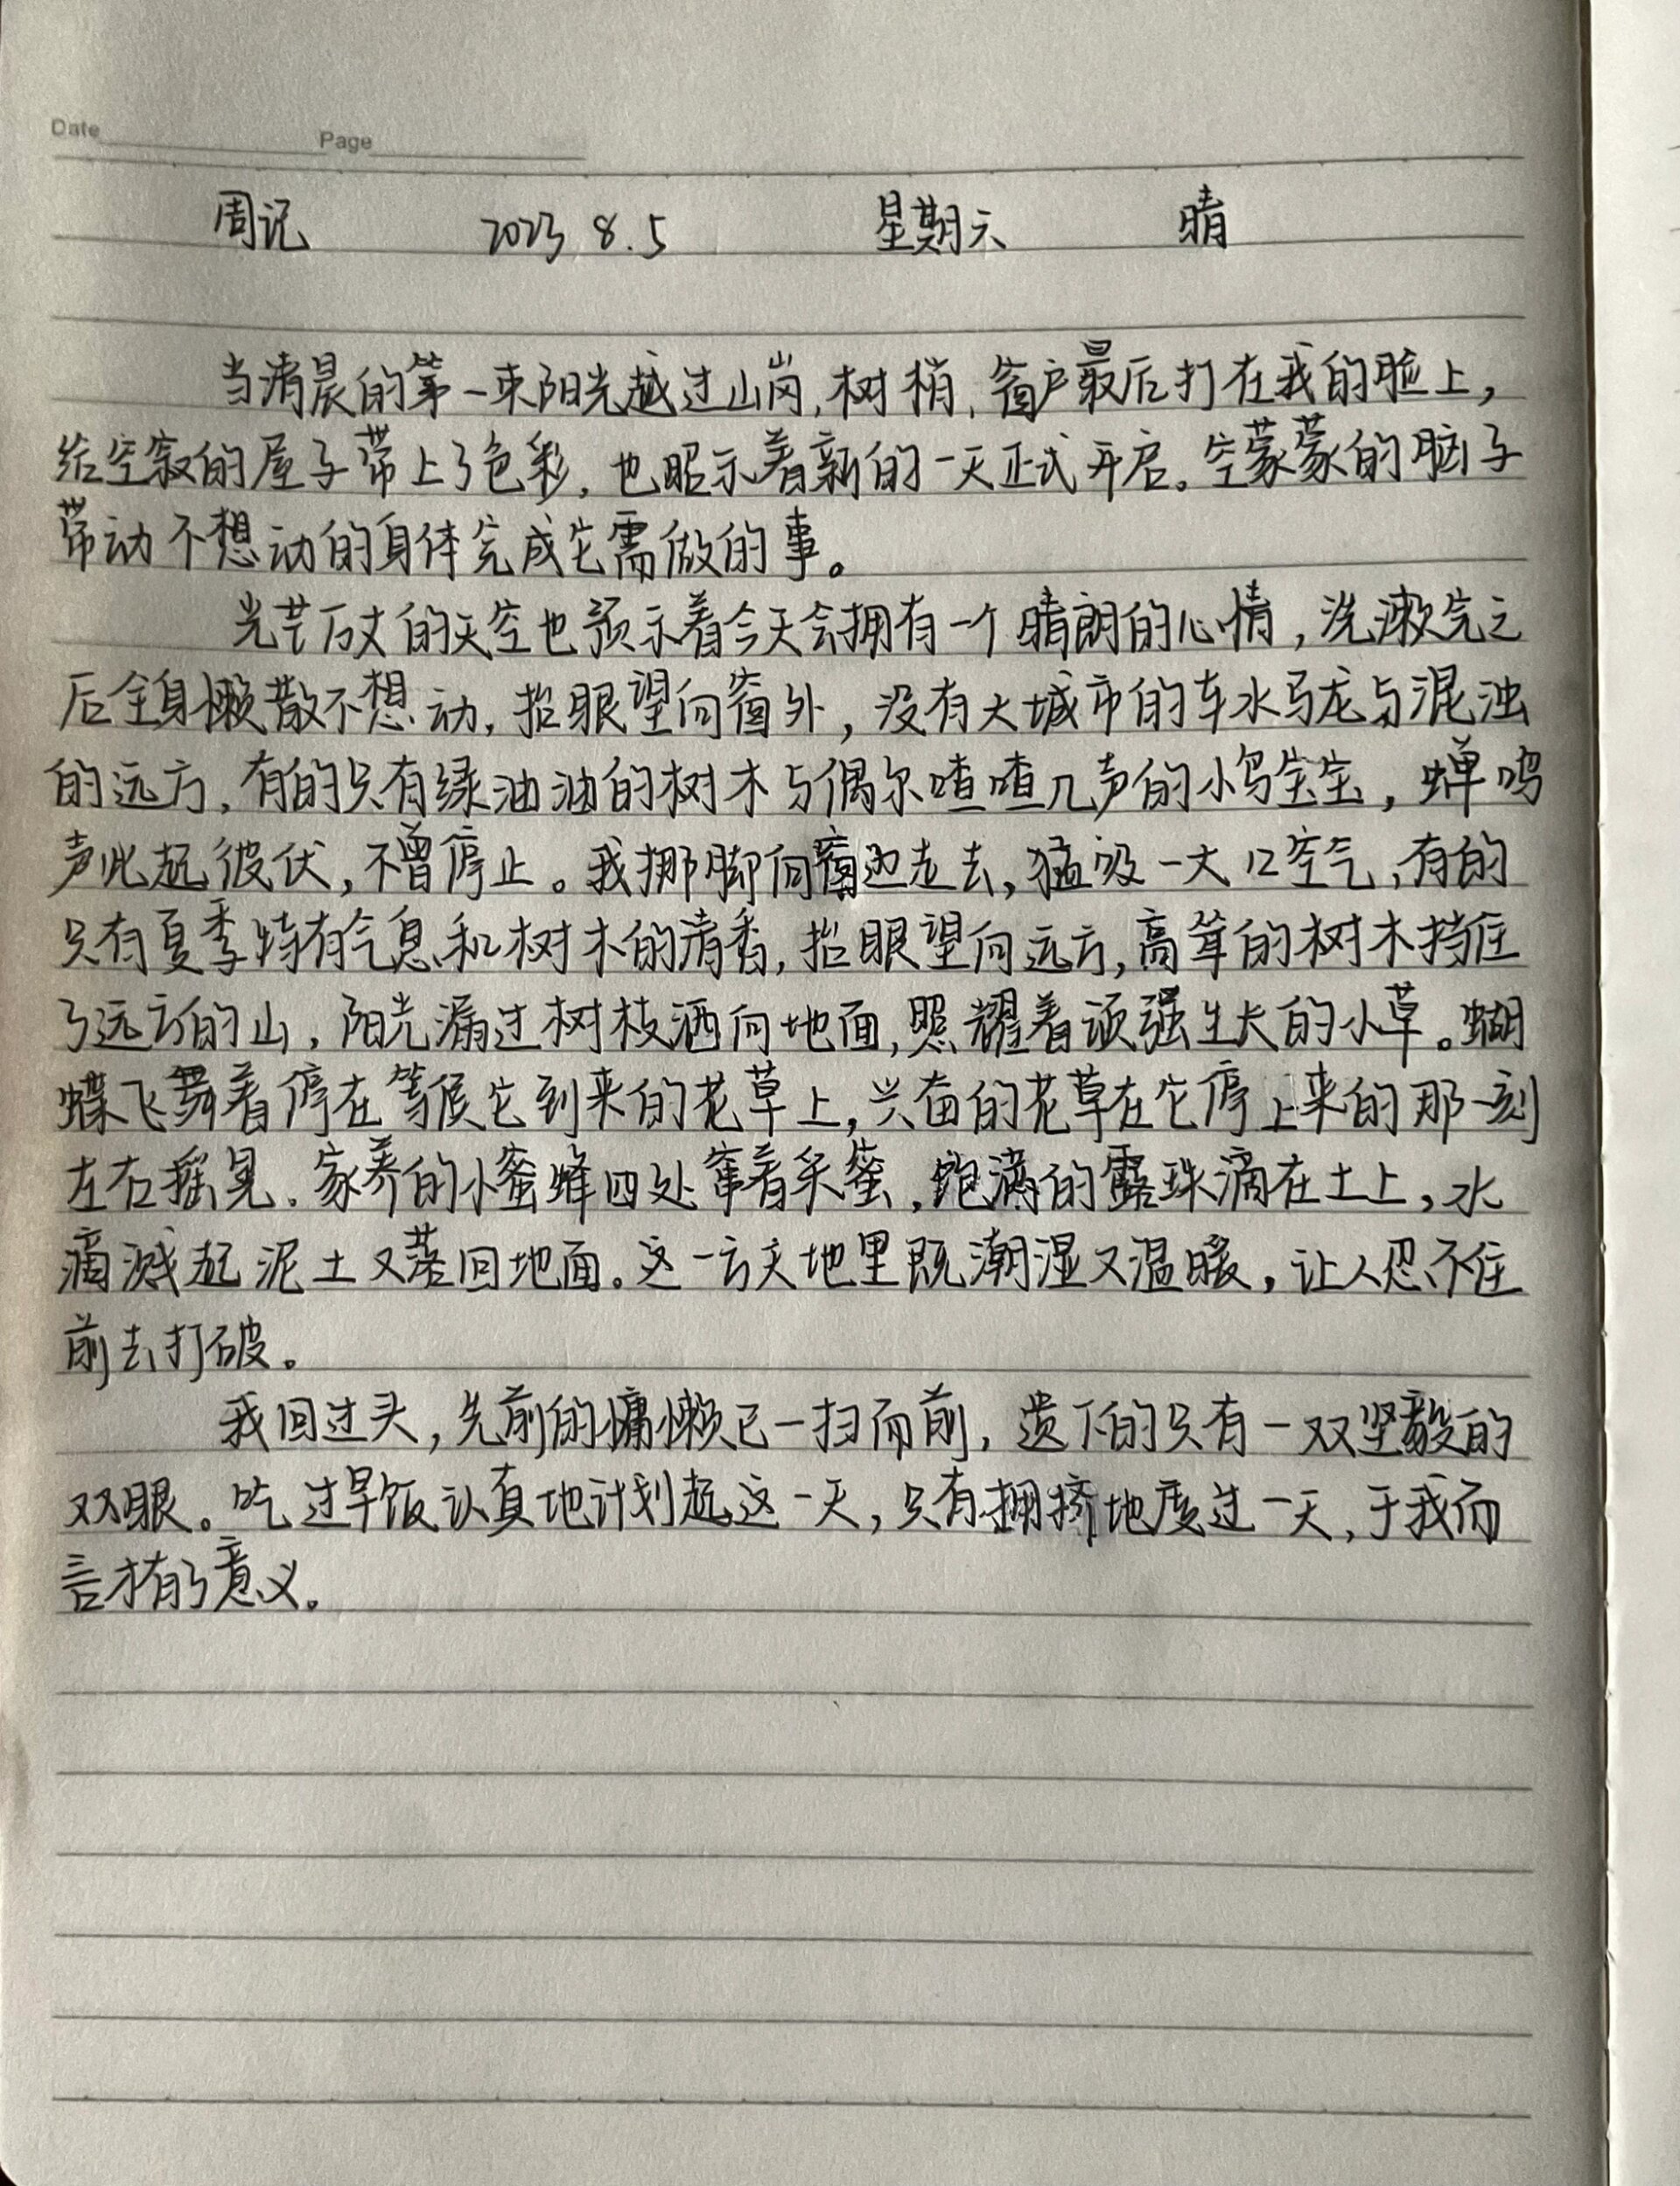 Date Page
周记 2023 8.5 星期六 晴
当清晨的第一束阳光越过山岗,树梢,窗户最后打在我的脸上,
给空寂的屋子带上了色彩,也昭示着新的一天正式开启。空蒙蒙的脑子
带动不想动的身体完成它需做的事。
光芒万丈的天空也预示着今天会拥有一个晴朗的心情,洗漱完之
后全身懒散不想动,抬眼望向窗外,没有大城市的车水马龙与混浊
的远方,有的只有绿油油的树木与偶尔喳喳几声的小鸟宝宝,蝉鸣
声此起彼伏,不曾停止。我挪脚向窗边走去,猛吸一大口空气,有的
只有夏季特有气息和树木的清香,抬眼望向远方,高耸的树木挡住
了远方的山,阳光漏过树枝洒向地面,照耀着顽强生长的小草。蝴
蝶飞舞着停在等候它到来的花草上,兴奋的花草在它停上来的那一刻
左右摇晃.家养的小蜜蜂四处窜着采蜜,饱满的露珠滴在土上,水
滴溅起泥土又落回地面。这一方天地里既潮湿又温暖,让人忍不住
前去打破。
我回过头,先前的慵懒已一扫而前,遗下的只有一双坚毅的
双眼。吃过早饭认真地计划起这一天,只有拥挤地度过一天,于我而
言才有了意义。